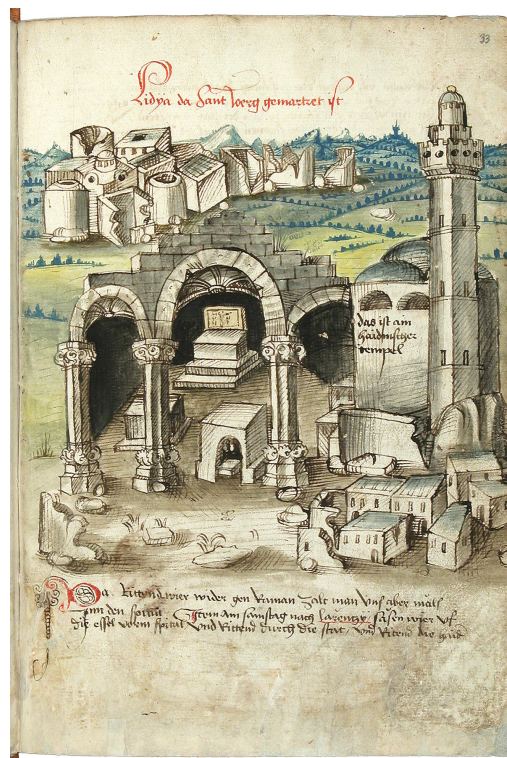 33
Lidÿa da sant Joerg gemartret ist
das ist ain
haidnischer
tempel
Da Rittend wier wider gen Raman zalt man unß aber mals
jnn den spittal Item am samstag nach Larentze sasen wier uf
die essel vorem spittal und Rittend durch die stat und Rittend die